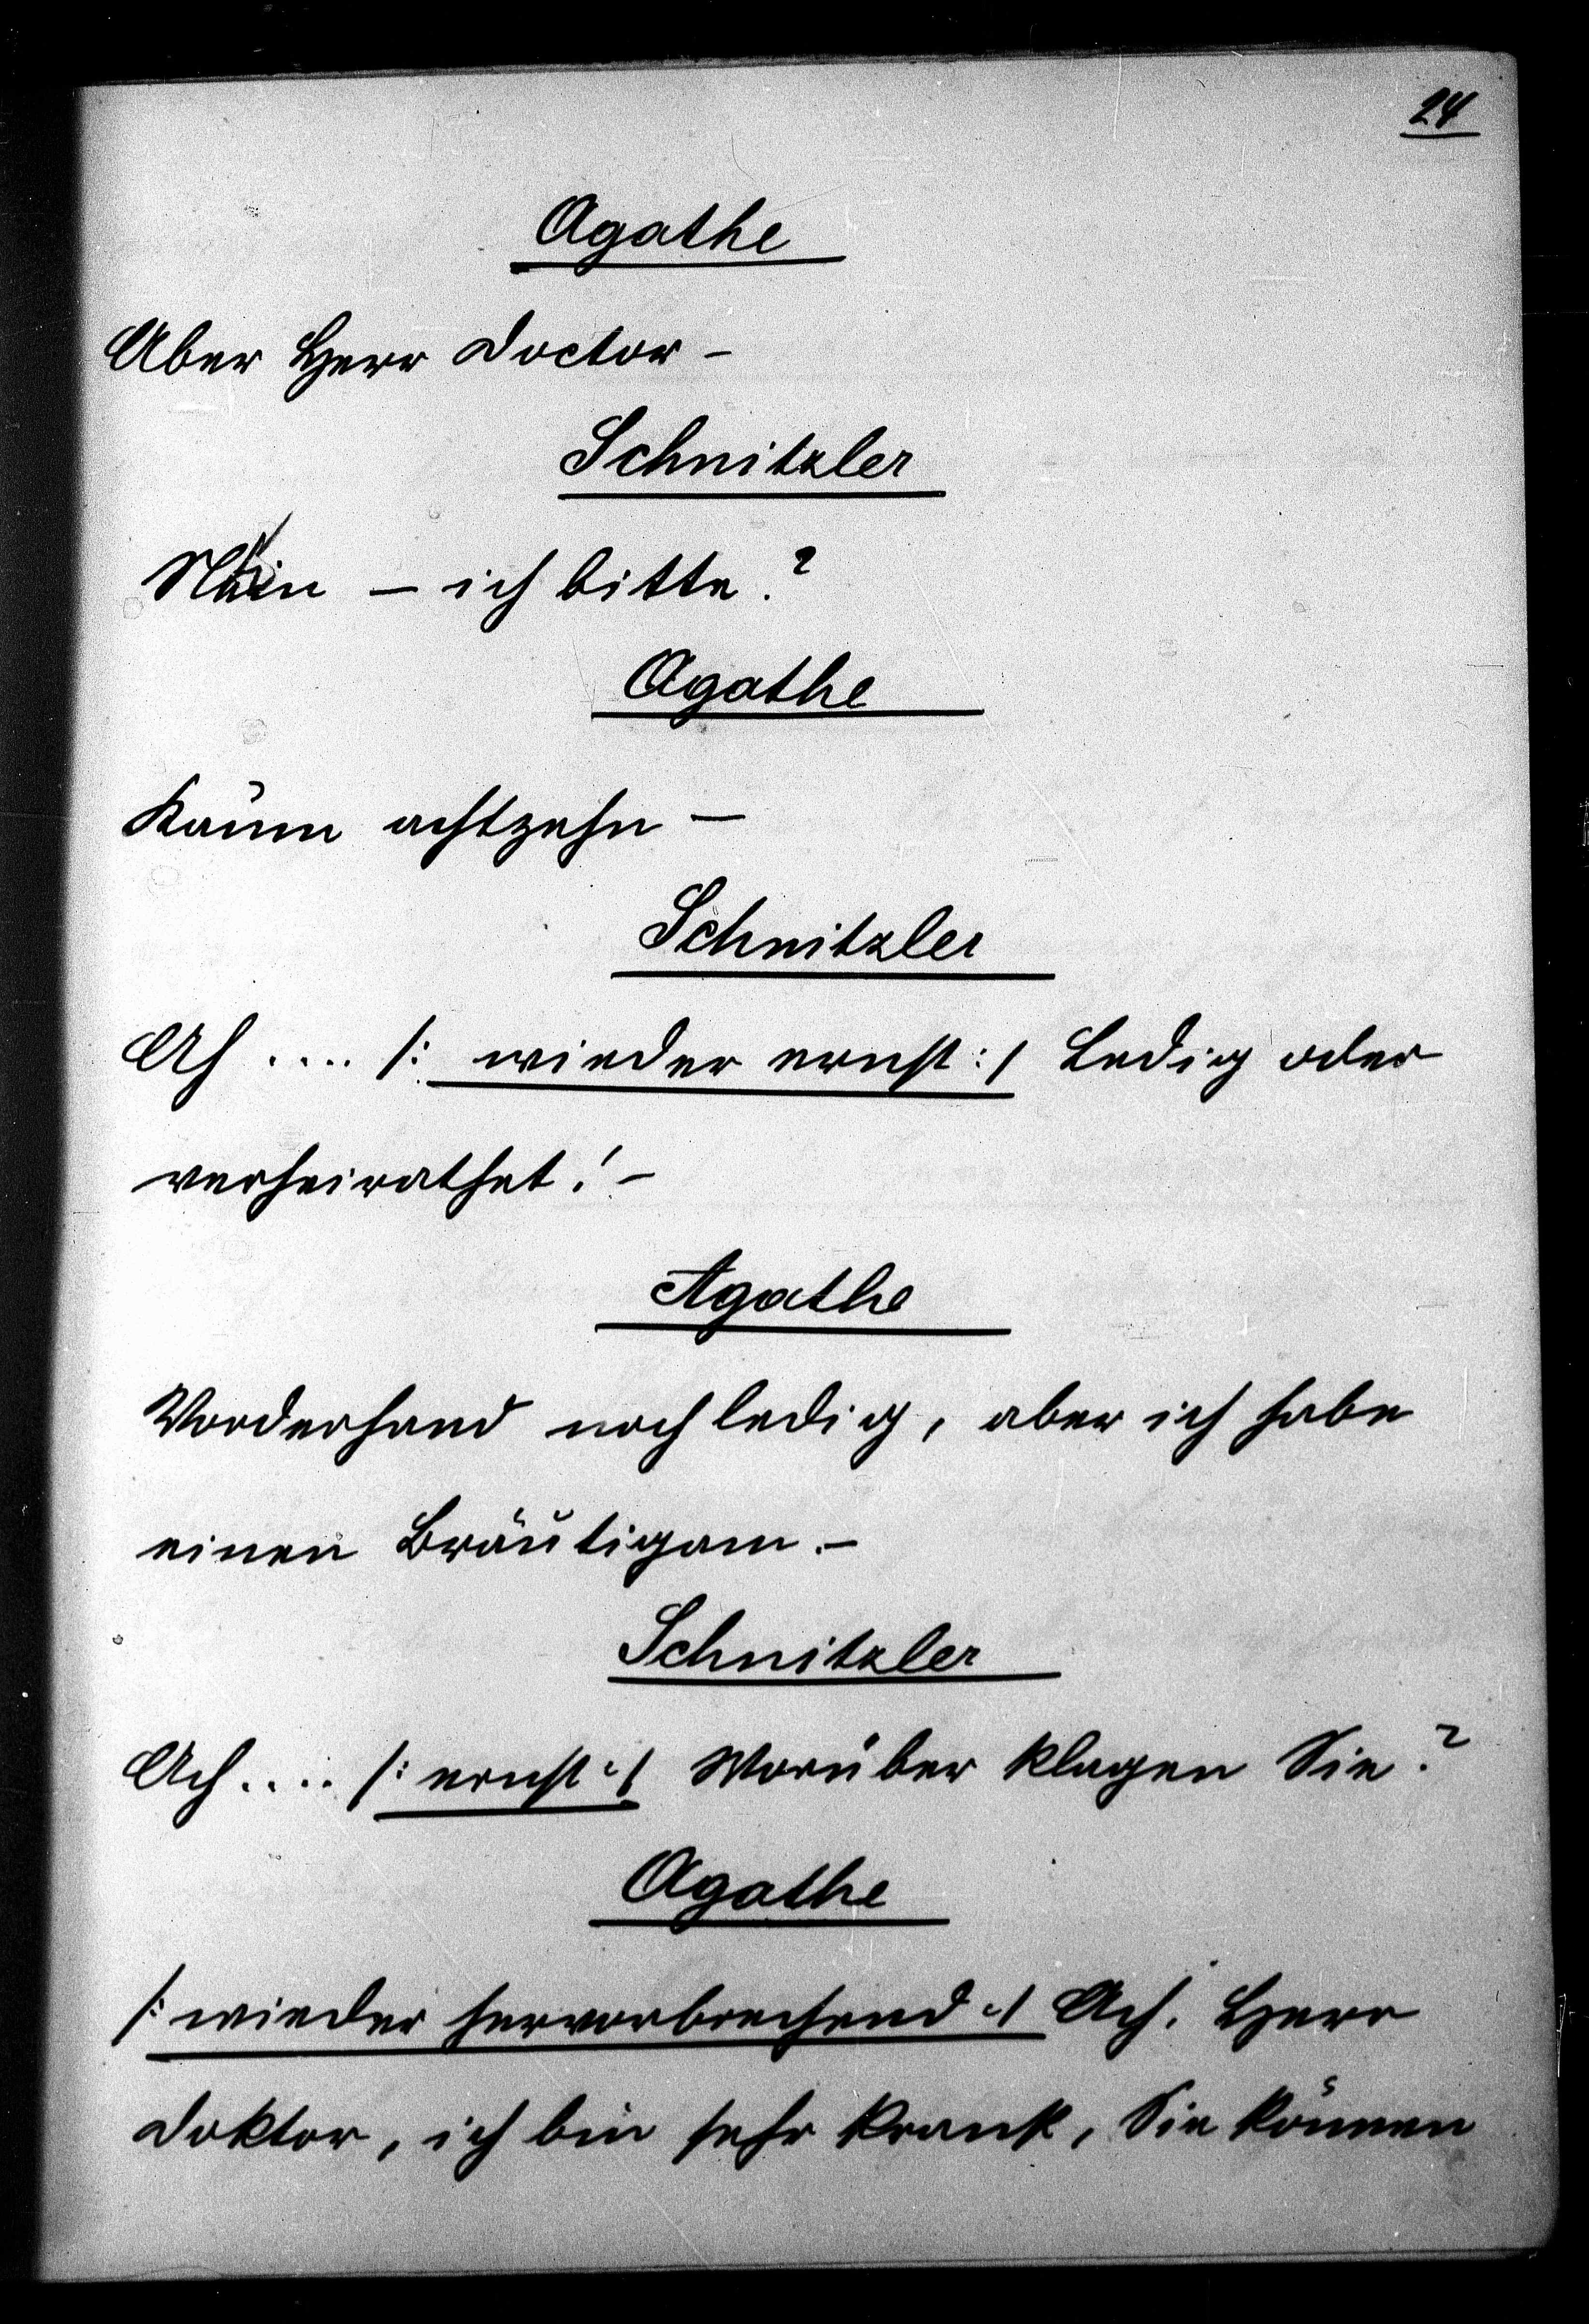 24
Agathe
Aber Herr Doctor –
Schnitzler
– ich bitte?
Agathe
Kaum achtzehn –
Schnitzler
Ah .... /: wieder ernst :/ Ledig oder
verheirathet! –
Agathe
Vorderhand noch ledig, aber ich habe
einen Bräutigam. –
Schnitzler
Ach .... /: ernst :/ Worüber klagen Sie?
Agathe
/: wieder hervorbrechend :/ Ach. Herr
Doktor, ich bin sehr krank, Sie können